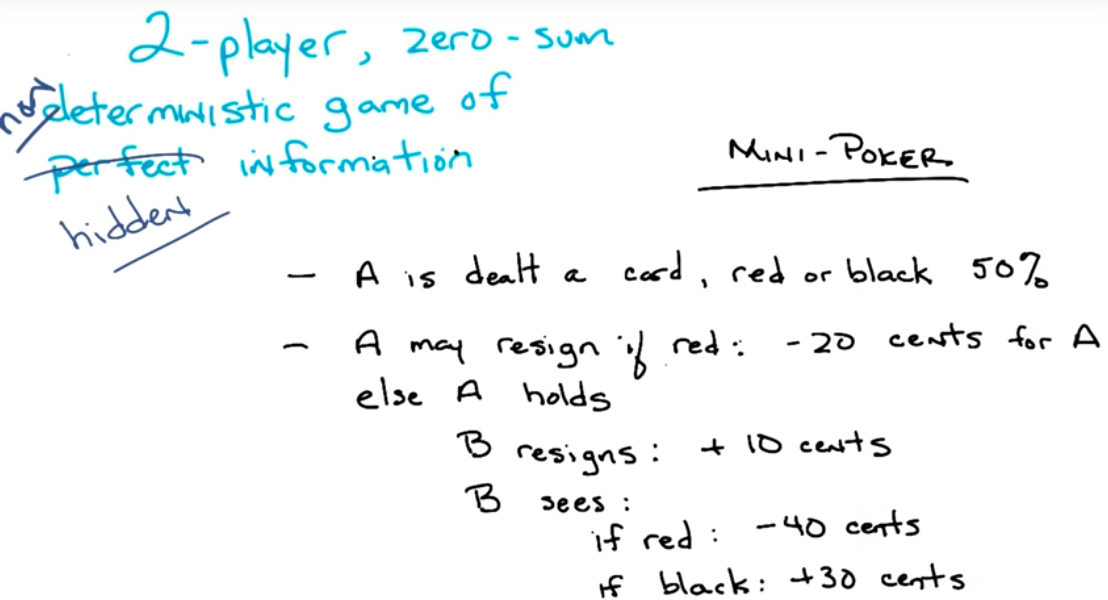 2-player, zero-sum
non
deterministic game of
perfect information
hidden
MINI-POKER
- A is dealt a card, red or black 50%
- A may resign if red: -20 cents for A
else A holds
B resigns: + 10 cents
B sees:
if red: -40 cents
if black: +30 cents